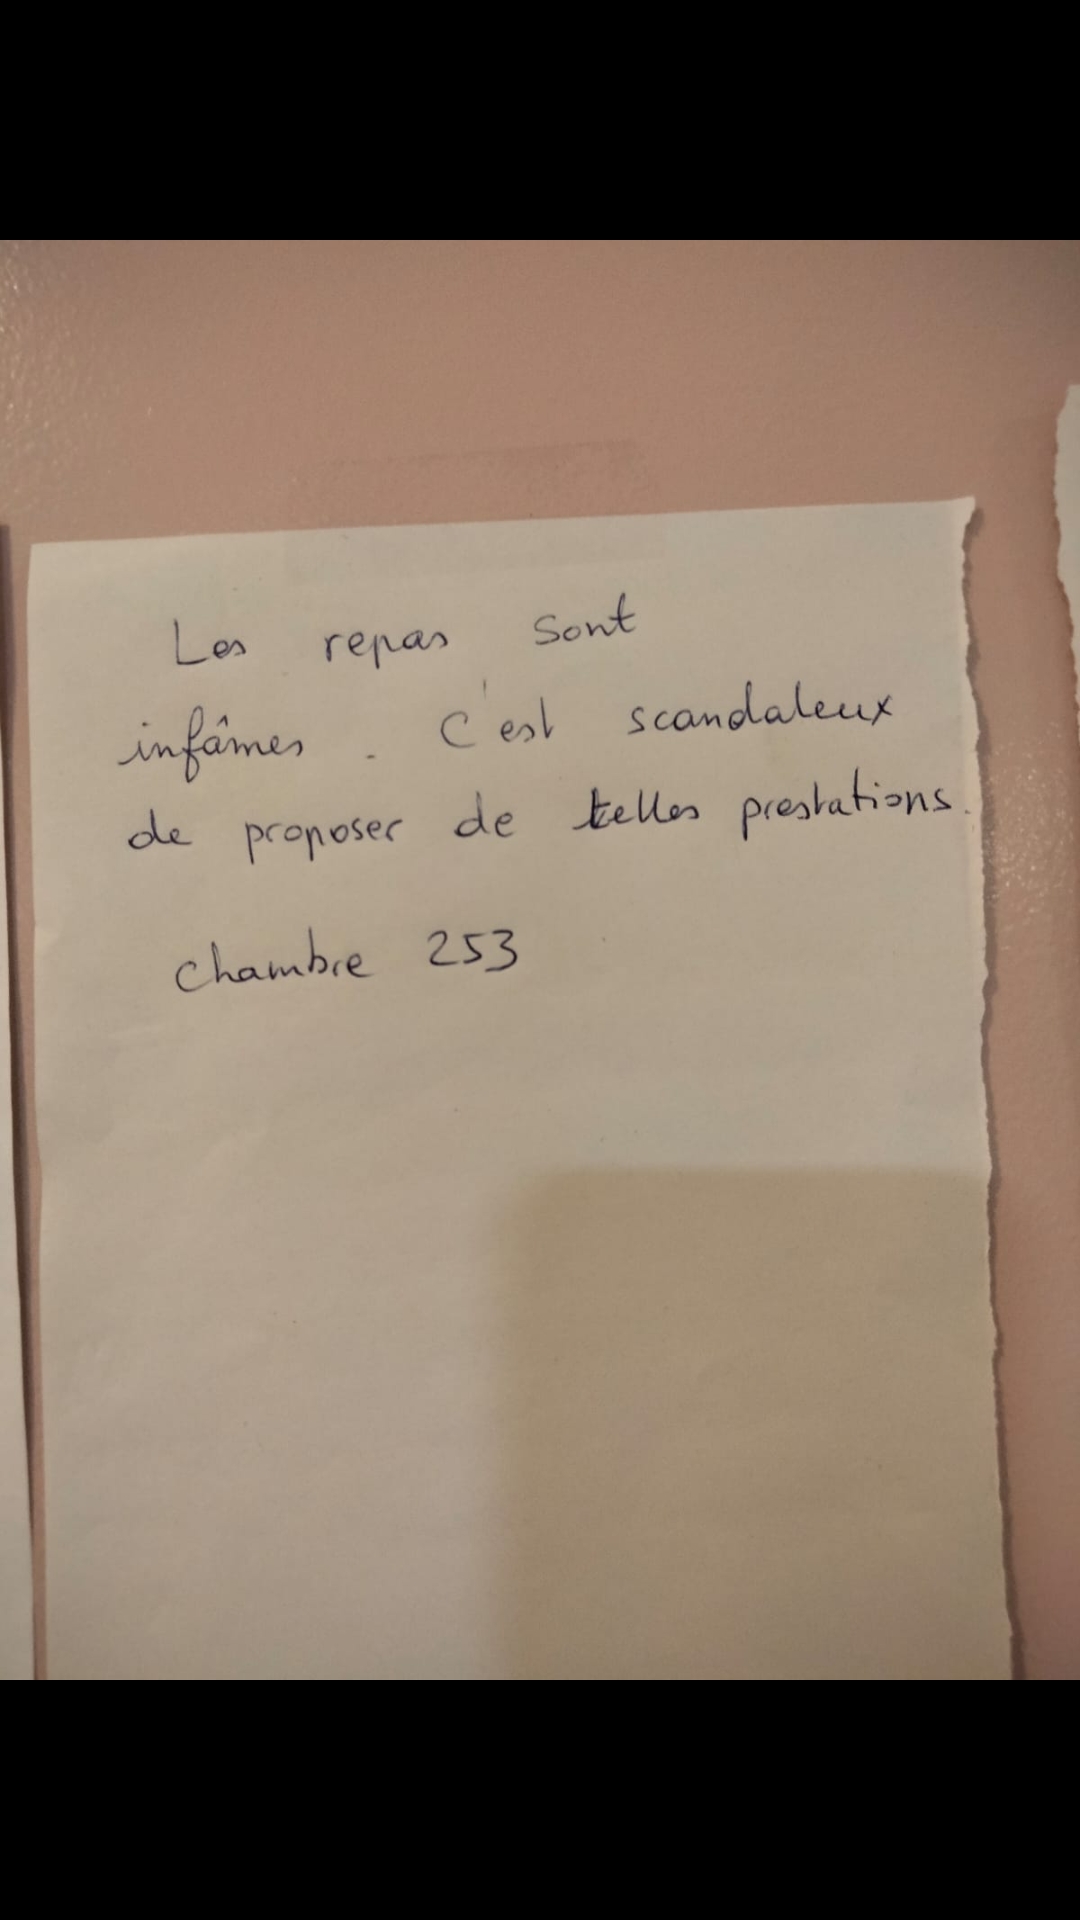 Les repas sont
infâmes. C'est scandaleux
de proposer de telles prestations.
Chambre 253